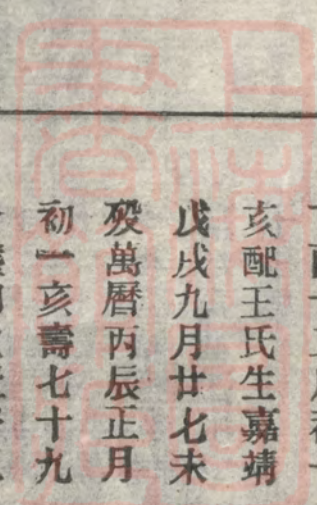 亥配王氏生嘉靖
戊戌九月廿七未
歿萬曆丙辰正月
初一亥壽七十九